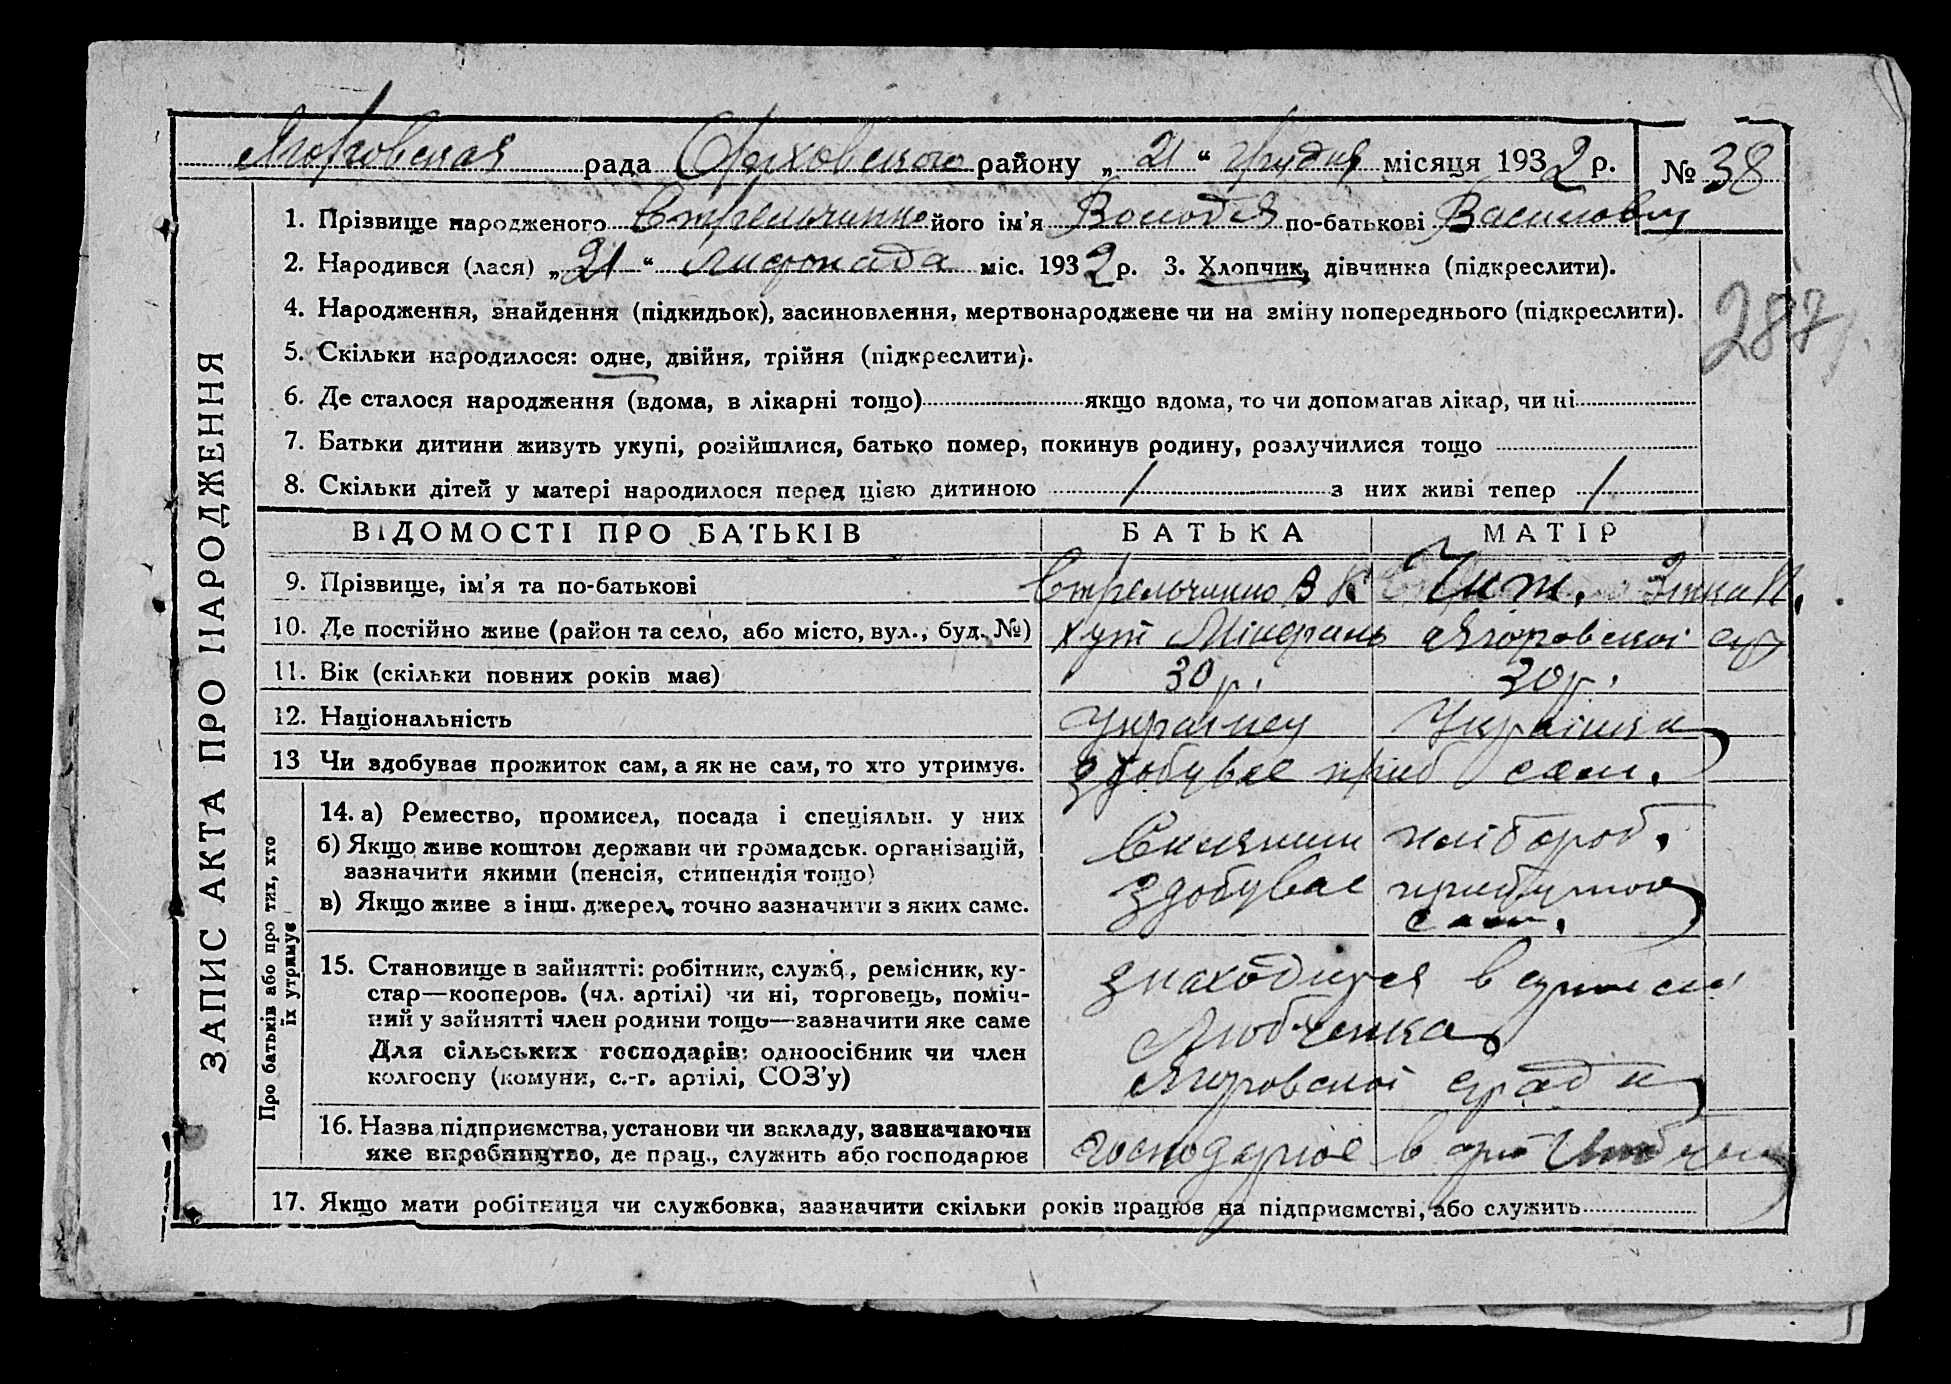 рада Оріховского району „ 21 “ Грудня місяця 1932 р. № 38
1. Прізвище народженого Стрельченко його ім'я Володя по-батькові Васильович
2. Народився (лася) „ 21 “ листопада міс. 1932 р. 3. Хлопчик, дівчинка (підкреслити).
4. Народження, знайдення (підкидьок), засиновлення, мертвонароджене чи на зміну попереднього (підкреслити).
287
5. Скільки народилося: одне, двійня, трійня (підкреслити).
6. Де сталося народження (вдома, в лікарні тощо) якщо вдома, то чи допомагав лікар, чи ні
7. Батьки дитини живуть укупі, розійшлися, батько помер, покинув родину, розлучилися тощо
8. Скільки дітей у матері народилося перед цією дитиною 1 з них живі тепер 1
ЗАПИС АКТА ПРО НАРОДЖЕННЯ
ВІДОМОСТІ ПРО БАТЬКІВ БАТЬКА МАТІР
9. Прізвище, ім'я та по-батькові Стрельченко В К
10. Де постійно живе (район та село, або місто, вул., буд. №) хут
11. Вік (скільки повних років має) 30 р. 30 р.
12. Національність Українец Українка
13 Чи здобував прожиток сам, а як не сам, то хто утримує. здобувае приб сам.
Про батьків або про тих, хто
їх утримує
14. а) Ремество, промисел, посада і спеціяльн. у них
б) Якщо живе коштом держави чи громадськ. організацій,
зазначити якими (пенсія, стипендія тощо) хлібороб.
в) Якщо живе з інш. джерел, точно зазначити з яких саме. здобувае прибуток
сам.
15. Становище в зайнятті: робітник, служб., ремісник, ку-
стар—кооперов. (чл. артілі) чи ні, торговець, поміч- знаходиця в
ний у зайнятті член родини тощо—зазначити яке саме
Для сільських господарів: одноосібник чи член Любченка
колгоспу (комуни, с.-г. артілі, СОЗ'у)
16. Назва підприємства, установи чи закладу, зазначаючи
яке виробництво, де прац., служить або господарює господарює в
17. Якщо мати робітниця чи службовка, зазначити скільки років працює на підприємстві, або служить